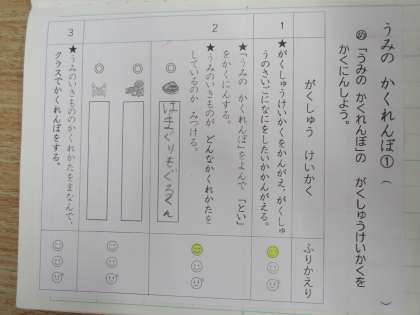 うみの かくれんぼ①（　　）
め「うみの かくれんぼ」の がくしゅうけいかくを
かくにんしよう。
がくしゅう けいかく
ふりかえり
1
★がくしゅうけいかくをかんがえ、がくしゅ
うのさいごになにをしたいかかんがえる。
2
★「うみの かくれんぼ」をよんで「とい」
をかくにんする。
★うみのいきものが どんなかくれかたを
しているのか みつける。
◎
はまぐりもぐる
◎
◎
3
★うみのいきもののかくれかたをまなんで、
クラスでかくれんぼをする。